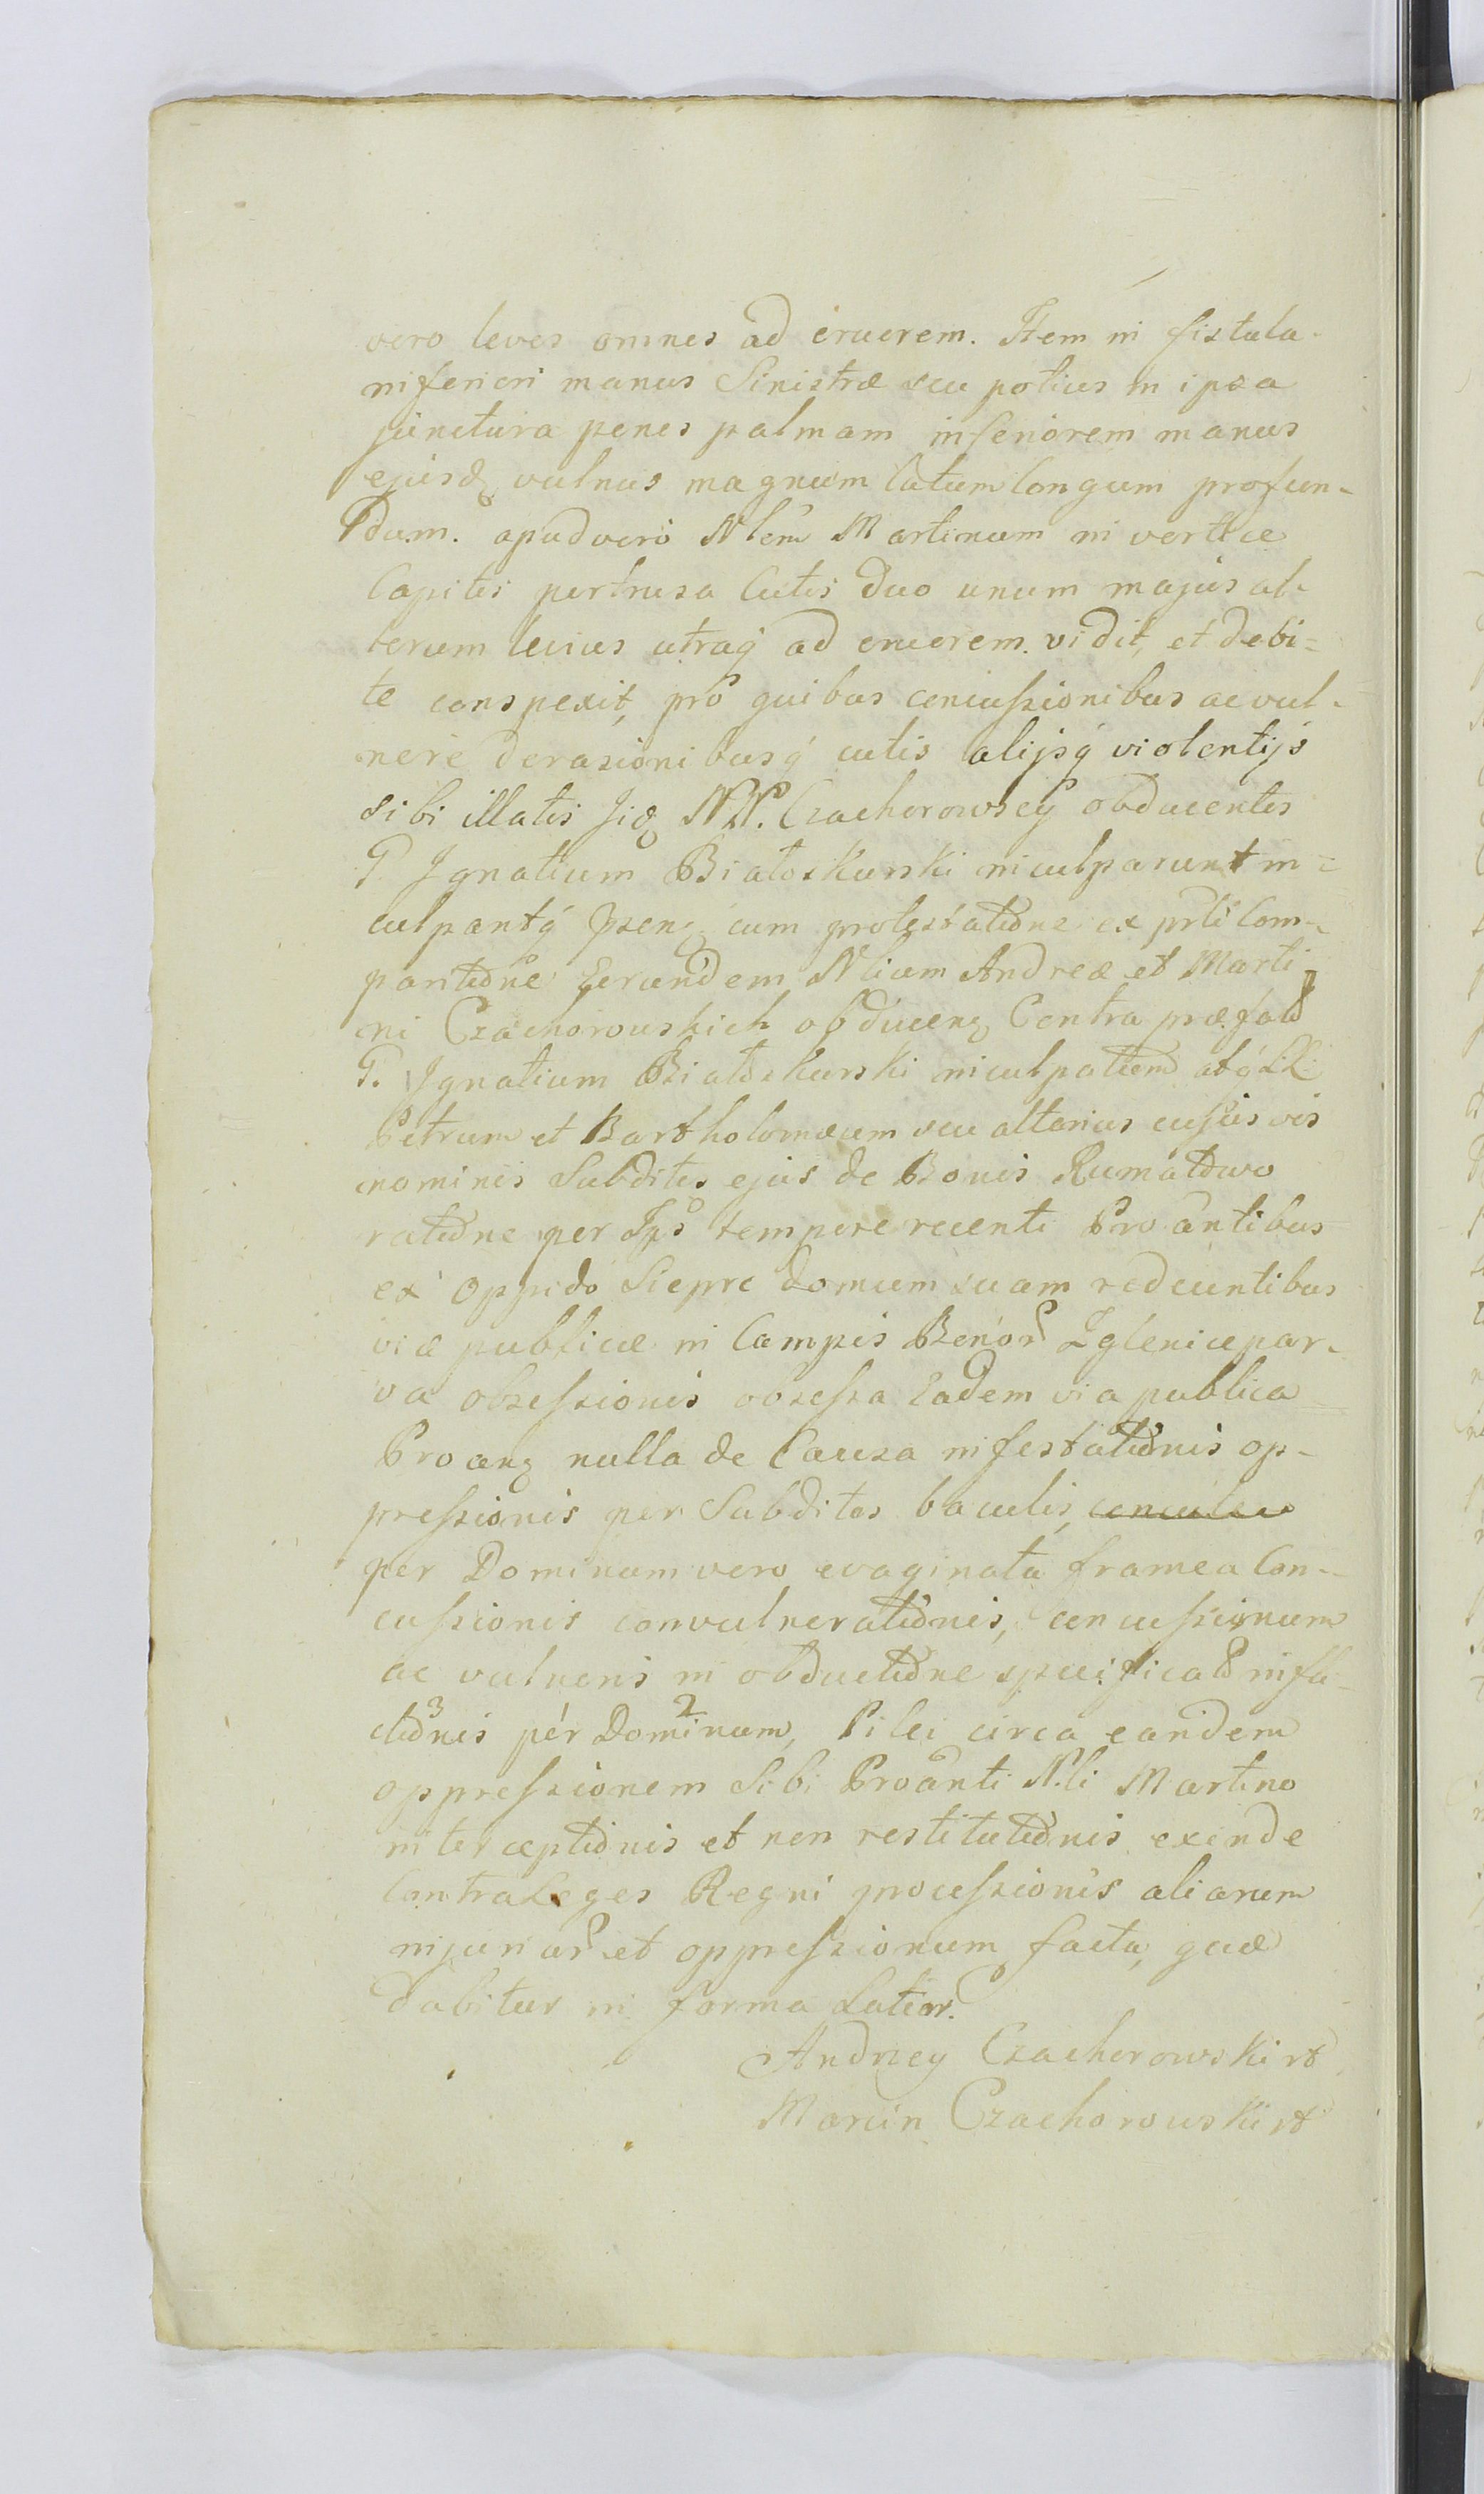 vero leves omnes ad cruorem. Item in fistula
inferiori manus Sinistræ seu potius in ipsa
junctura penes palmam inferiorem manus
ejusdẽ vulnus magnum latum longum profun-
dum. apud vero Nlem Martinum in vertice
Capitis pertrusa Cutis duo unum majus al-
terum levius utraq̃ ad cruorem. vidit, et debi=
te conspexit, pro quibus concussionibus ac vul-
nere derasionibusq̃ cutis alijsq̃ violentijs
sibi illatis Iid NN. Czachorowscy obducentes
G. Ignatium Białoskurski inculparunt in=
culpantq̃ cum protestatione ex prti Com-
paritione Eorundem Nlium Andreæ et Marti
ni Czachorowskich obducen Contra præfat
G. Ignatium Białoskurski inculpatum atq̃ LL
Petrum et Bartholomæum seu alterius cujusvis
nominis Subditos ejus de Bonis Rumałtowo
ratione per Ips tempore recenti Proantibus
ex Oppido Sieprc domum suam redeuntibus
viæ publicæ in Campis Bonor Zglenice par-
va obsessionis obsessa Eadem via publica
Proan nulla de Causa infestationis op-
pressionis per Subditos baculis,
per Dominum vero evaginata framea Con-
cussionis convulnerationis, concussionum
ac vulneris in obductione specificat infli
ctionis per Dominum, Pilei circa eandem
oppressionem Sibi Proanti N.li Martino
interceptionis et non restitutionis exinde
Contra Leges Regni processionis aliarum
injuriar et oppressionum facta, quæ
dabitur in forma Latior.
Andrzey Czachorowski
Marcin Czachorowski